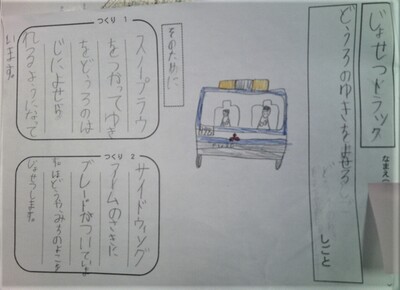 じょせつトラック
なまえ
どうろのゆきをよせる
しごと
そのために
つくり 1
スノープラウ
をつかってゆき
をどうろのは
じによせら
れるようになって
います。
つくり 2
サイドウィング
アームのさきに
ブレードがついてい
じょせつします。